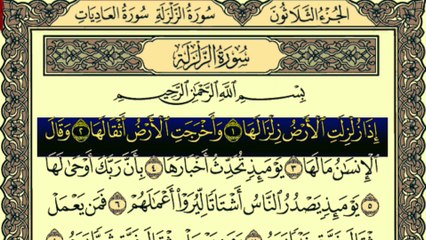 الجزء الثلاثون سورة الزلزلة سورة العاديات
سورة الزلزلة
بسم الله الرحمن الرحيم
إِذَا زُلْزِلَتِ ٱلْأَرْضُ زِلْزَالَهَا ١ وَأَخْرَجَتِ ٱلْأَرْضُ أَثْقَالَهَا ٢ وَقَالَ
ٱلْإِنسَٰنُ مَا لَهَا ٣ يَوْمَئِذٍ تُحَدِّثُ أَخْبَارَهَا ٤ بِأَنَّ رَبَّكَ أَوْحَىٰ لَهَا
٥ يَوْمَئِذٍ يَصْدُرُ ٱلنَّاسُ أَشْتَاتًا لِّيُرَوْا۟ أَعْمَٰلَهُمْ ٦ فَمَن يَعْمَلْ